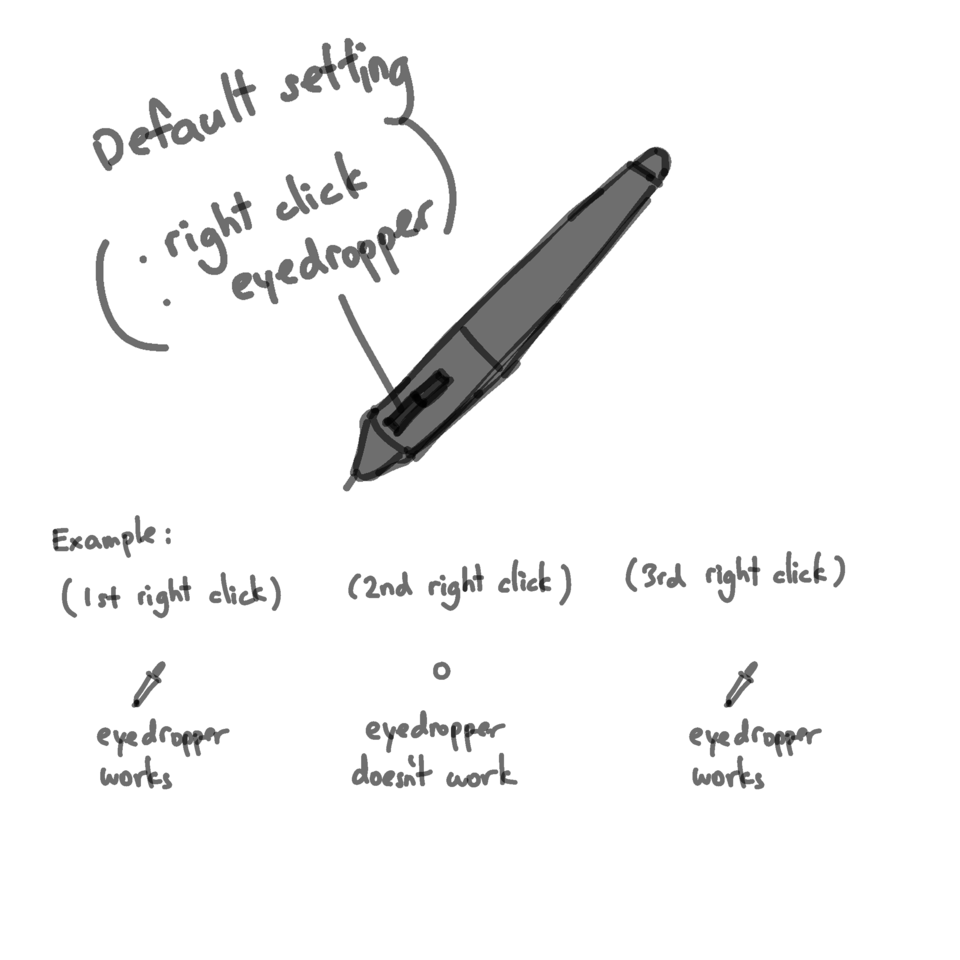 Default setting
(. right click
. eyedropper)
Example:
(1st right click)
(2nd right click)
(3rd right click)
eyedropper
works
eyedropper
doesn't work
eyedropper
works